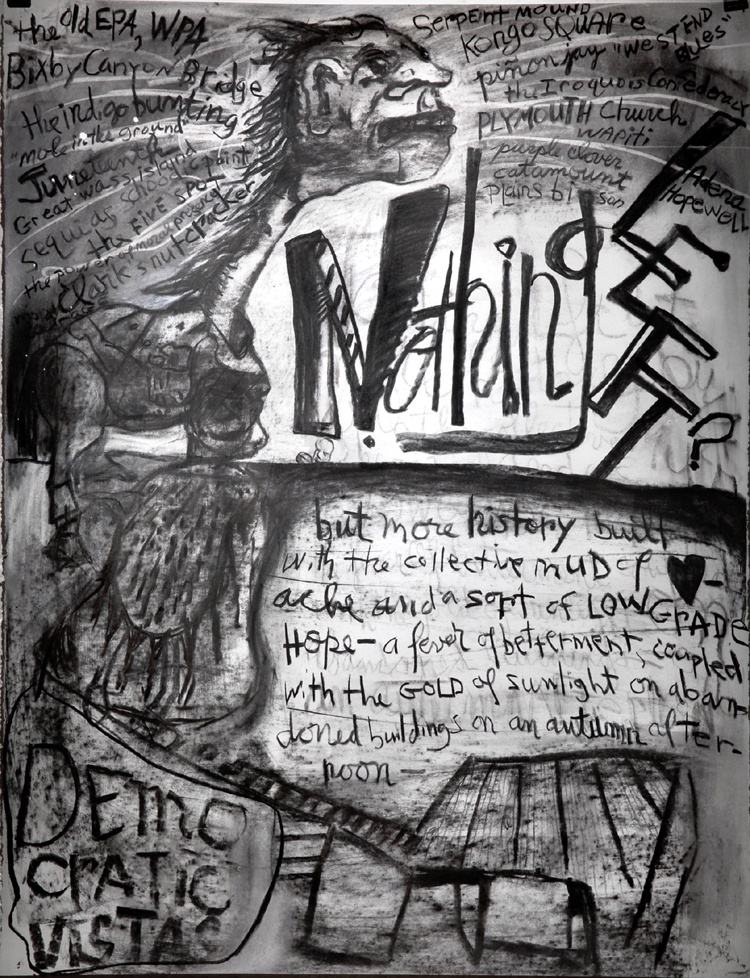 the old EPA, WPA
Bixby Canyon Bridge
the indigo bunting
"mole in the ground"
Juneteenth
Great wass island
sequias school paint
the FIVE SPOT
the power of
Clark's nutcracker
Serpent MOUND
Kongo SQUARe
piñon jay "WeST END BLUeS"
the Iroquois Confederacy
PLYMOUTH Church
WAPiTi
purple clover
catamount
plains bison
Adena
Hopewell
Nothing
LEFT?
but more history built
with the collective mUD of ♥-
ache and a sort of LOW GRADE
HOpe - a fever of betterment, coupled
with the GOLD of sunlight on aban-
doned buildings on an autumn after-
noon -
DEmo
CRATIC
VISTAS